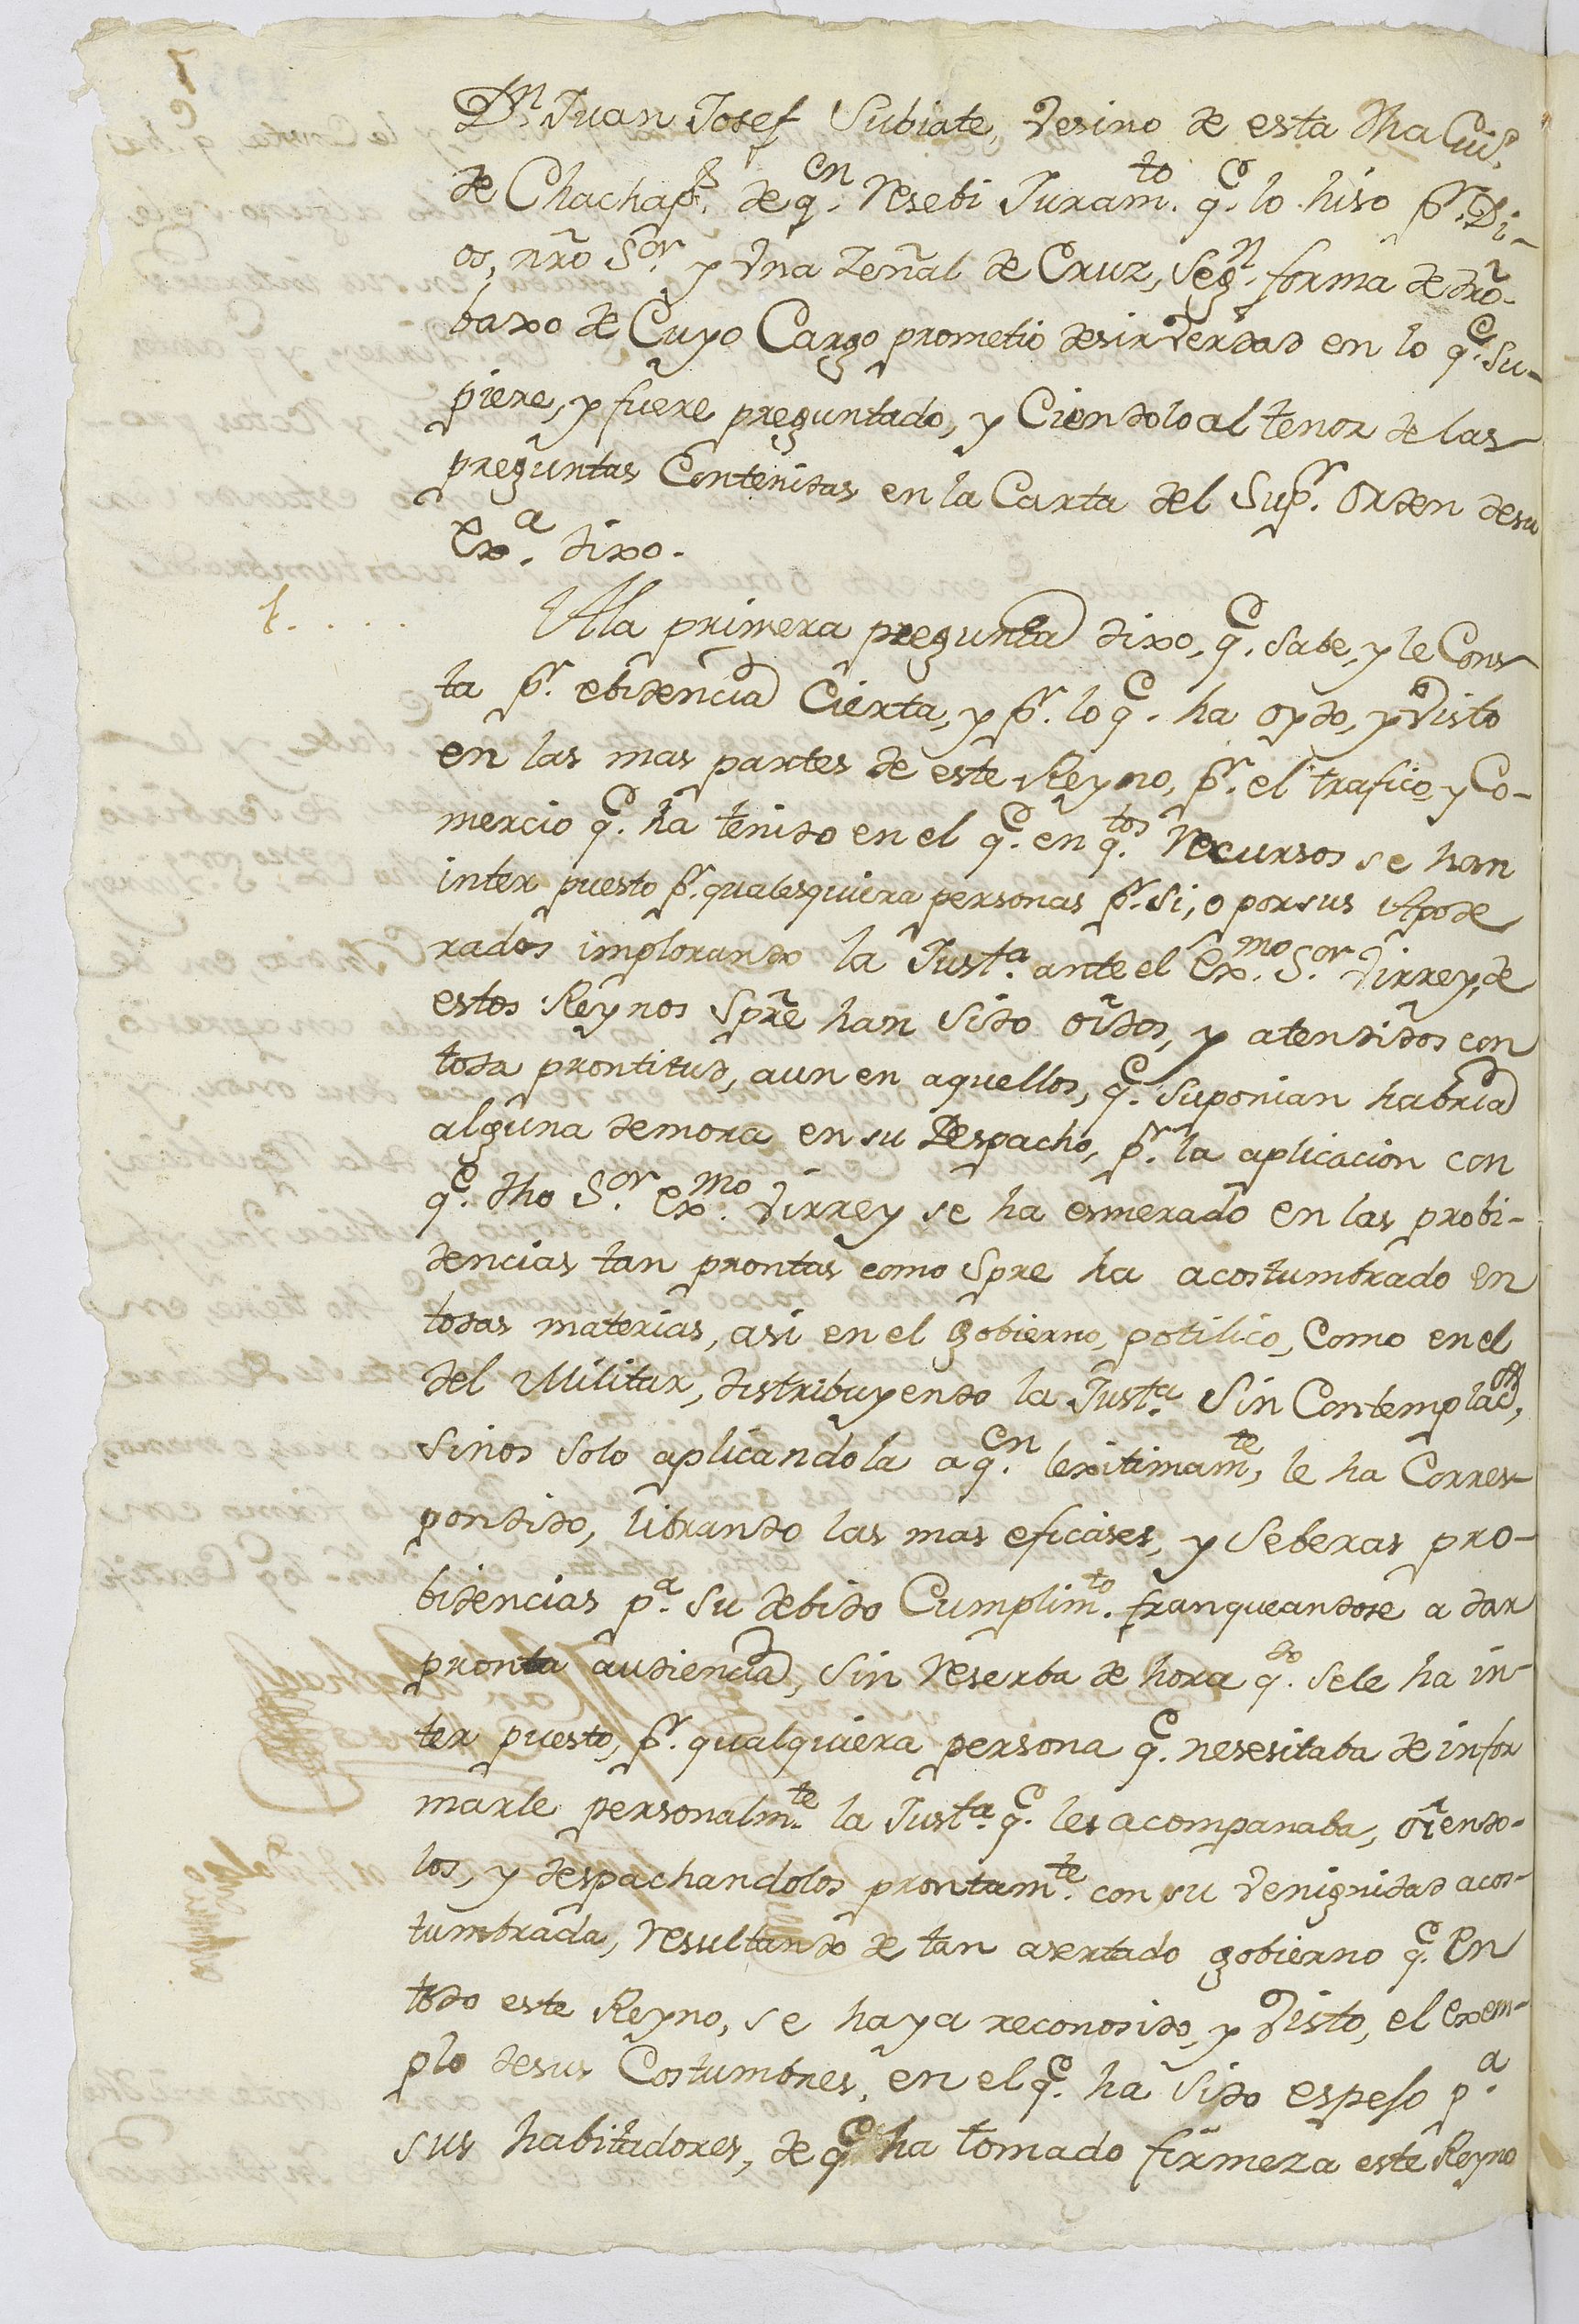 Dn. Juan Josef Subiate, Vesino de esta dha Ciud.
de Chachaps. de qn. resebi Juramto. qe. lo hiso pr. Di-
os, nro Sor. y Una Señal de Cruz, segn. forma de dro.
baxo de Cuyo Cargo prometio desir Verdad en lo qe. su-
piere, y fuere preguntado, y Ciendolo al tenor de las
preguntas Contenidas en la Carta del Supr. Orden de su
Exa. dixo.
1. . . . . Ala primera pregunta dixo, qe. sabe, y le Cons-
ta pr. ebidencia Cierta, y pr. lo qe. ha oydo, y Visto
en las mas partes de este Reyno, pr. el trafico, y Co-
mercio qe. ha tenido en el qe. en qtos. Recursos se han
inter puesto pr. qualesquiera personas pr. si, o por sus Apode
rados implorando la Justa. ante el Exmo. Sor. Virrey, de
estos Reynos Spre han sido oidos, y atendidos con
toda prontitud, aun en aquellos, qe. suponian habria
alguna demora en su Despacho, pr. la aplicacion con
qe. dho Sor. Exmo. Virrey se ha esmerado en las probi-
dencias tan prontas como Spre ha acostumbrado en
todas materias, asi en el gobierno, potilico, Como en el
del Militar, distribuyendo la Justa. Sin Contemplacon,
sinos solo aplicandola a qn. lexitimamte, le ha Corres-
pondido, librando las mas eficases, y Seberas pro-
bidencias pa. su debido Cumplimto. franqueandose a dar
pronta audiencia, sin reserba de hora qdo. se le ha in-
ter puesto, pr. qualquiera persona qe. nesesitaba de infor
marle personalmte. la Justa. qe. les acompanaba, oiendo-
los, y despachandolos prontamte. con su Venignidad acos-
tumbrada, resultando de tan asertado gobierno qe. en
todo este Reyno, se haya reconosido, y Visto, el exem-
plo de sus Costumbres, en el qe. ha sido espeso pa.
sus habitadores, de qe ha tomado firmeza este Reyno